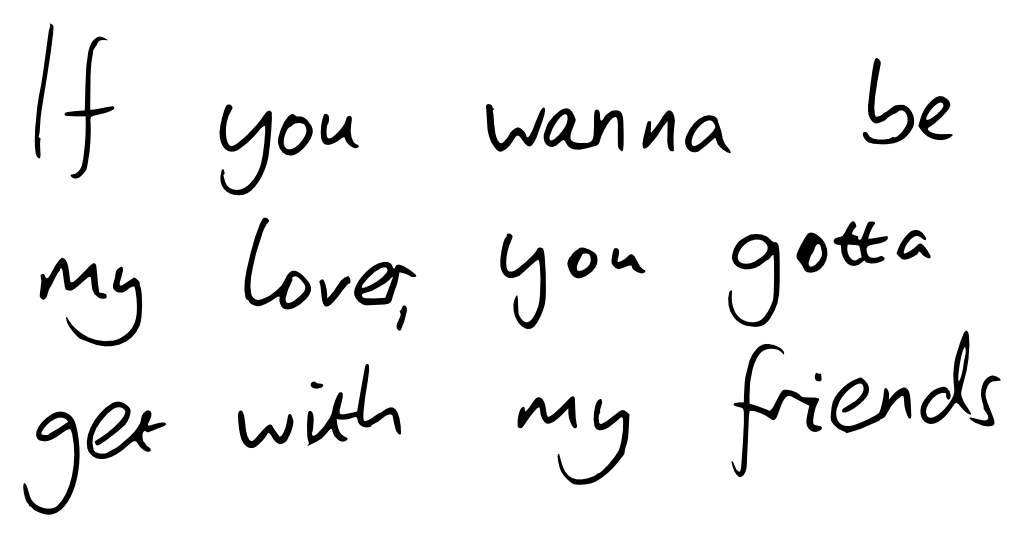 If you wanna be
my lover, you gotta
get with my friends